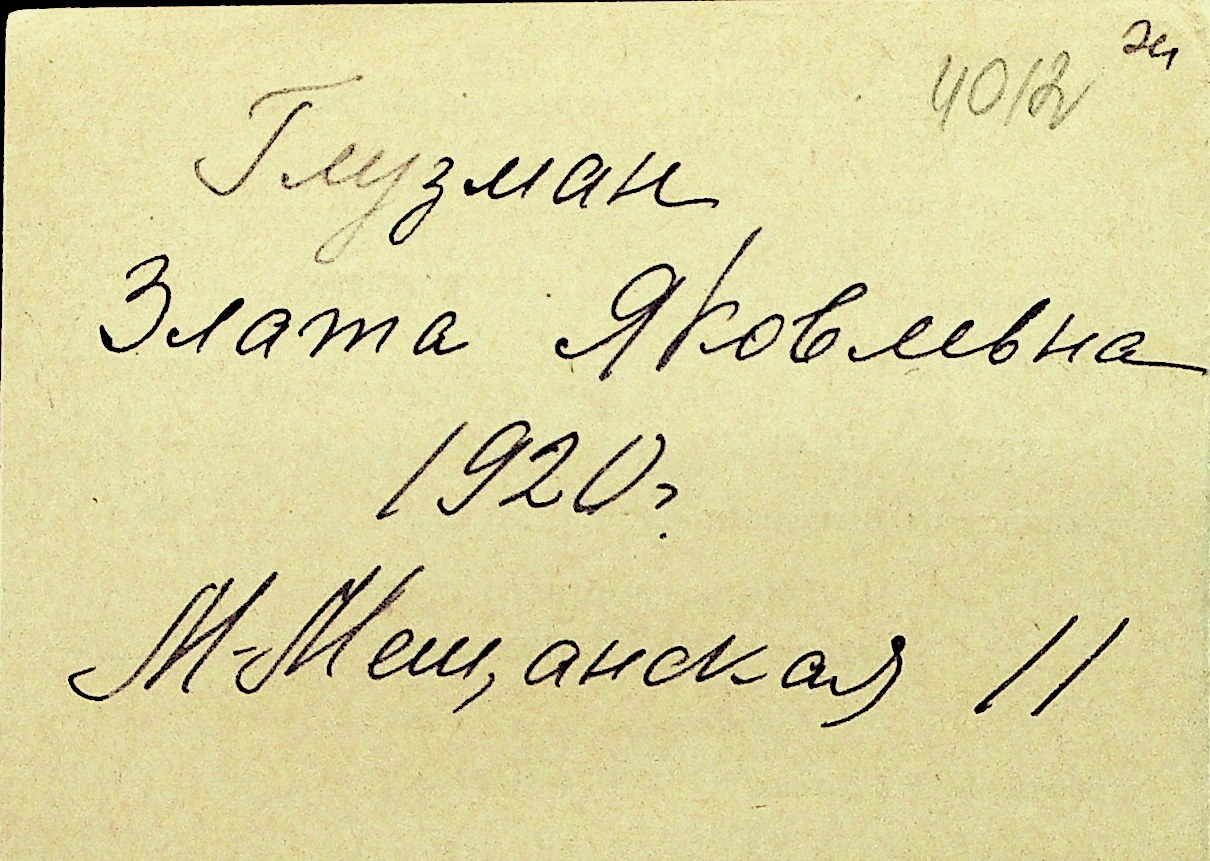 Глузман
Злата Яковлевна
1920 г.
М-Мещанская 11